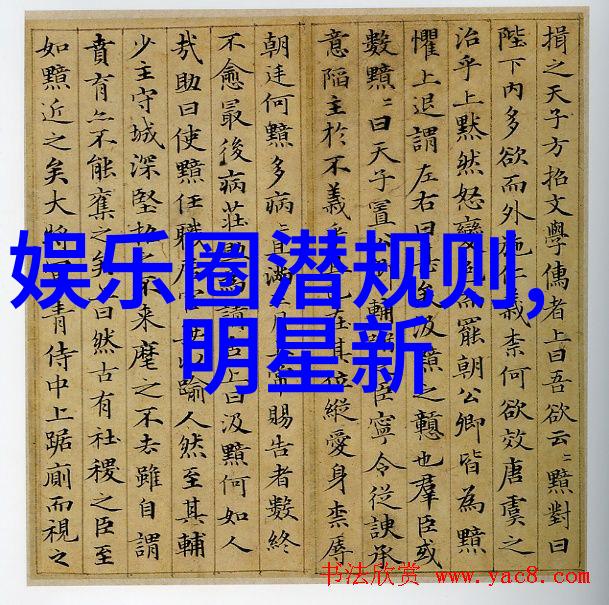 損之天子方招文學儒者上曰吾欲云〻黯對曰
陛下內多欲而外施仁義柰何欲效唐虞之
治乎上黙然怒變色罷朝公卿皆為黯
懼上退謂左右曰矣汲黯之戇也羣臣或
數黯〻曰天子置公輔臣寧令從諛承
意陷主於不義在其位縱愛身柰辱
朝廷何黯多病滿三月常賜告者數終
不愈最後病莊助為請告上曰汲黯何如人
㢤助曰使黯任職居以踰人然至其輔
少主守城深堅招之不來麾之不去雖自謂
賁育亦不能奪之矣曰然古有社稷之臣至
如黯近之矣大將軍青侍中上踞廁而視之
娱乐圈潜规则,
明星新
书法欣赏 www.yac8.com